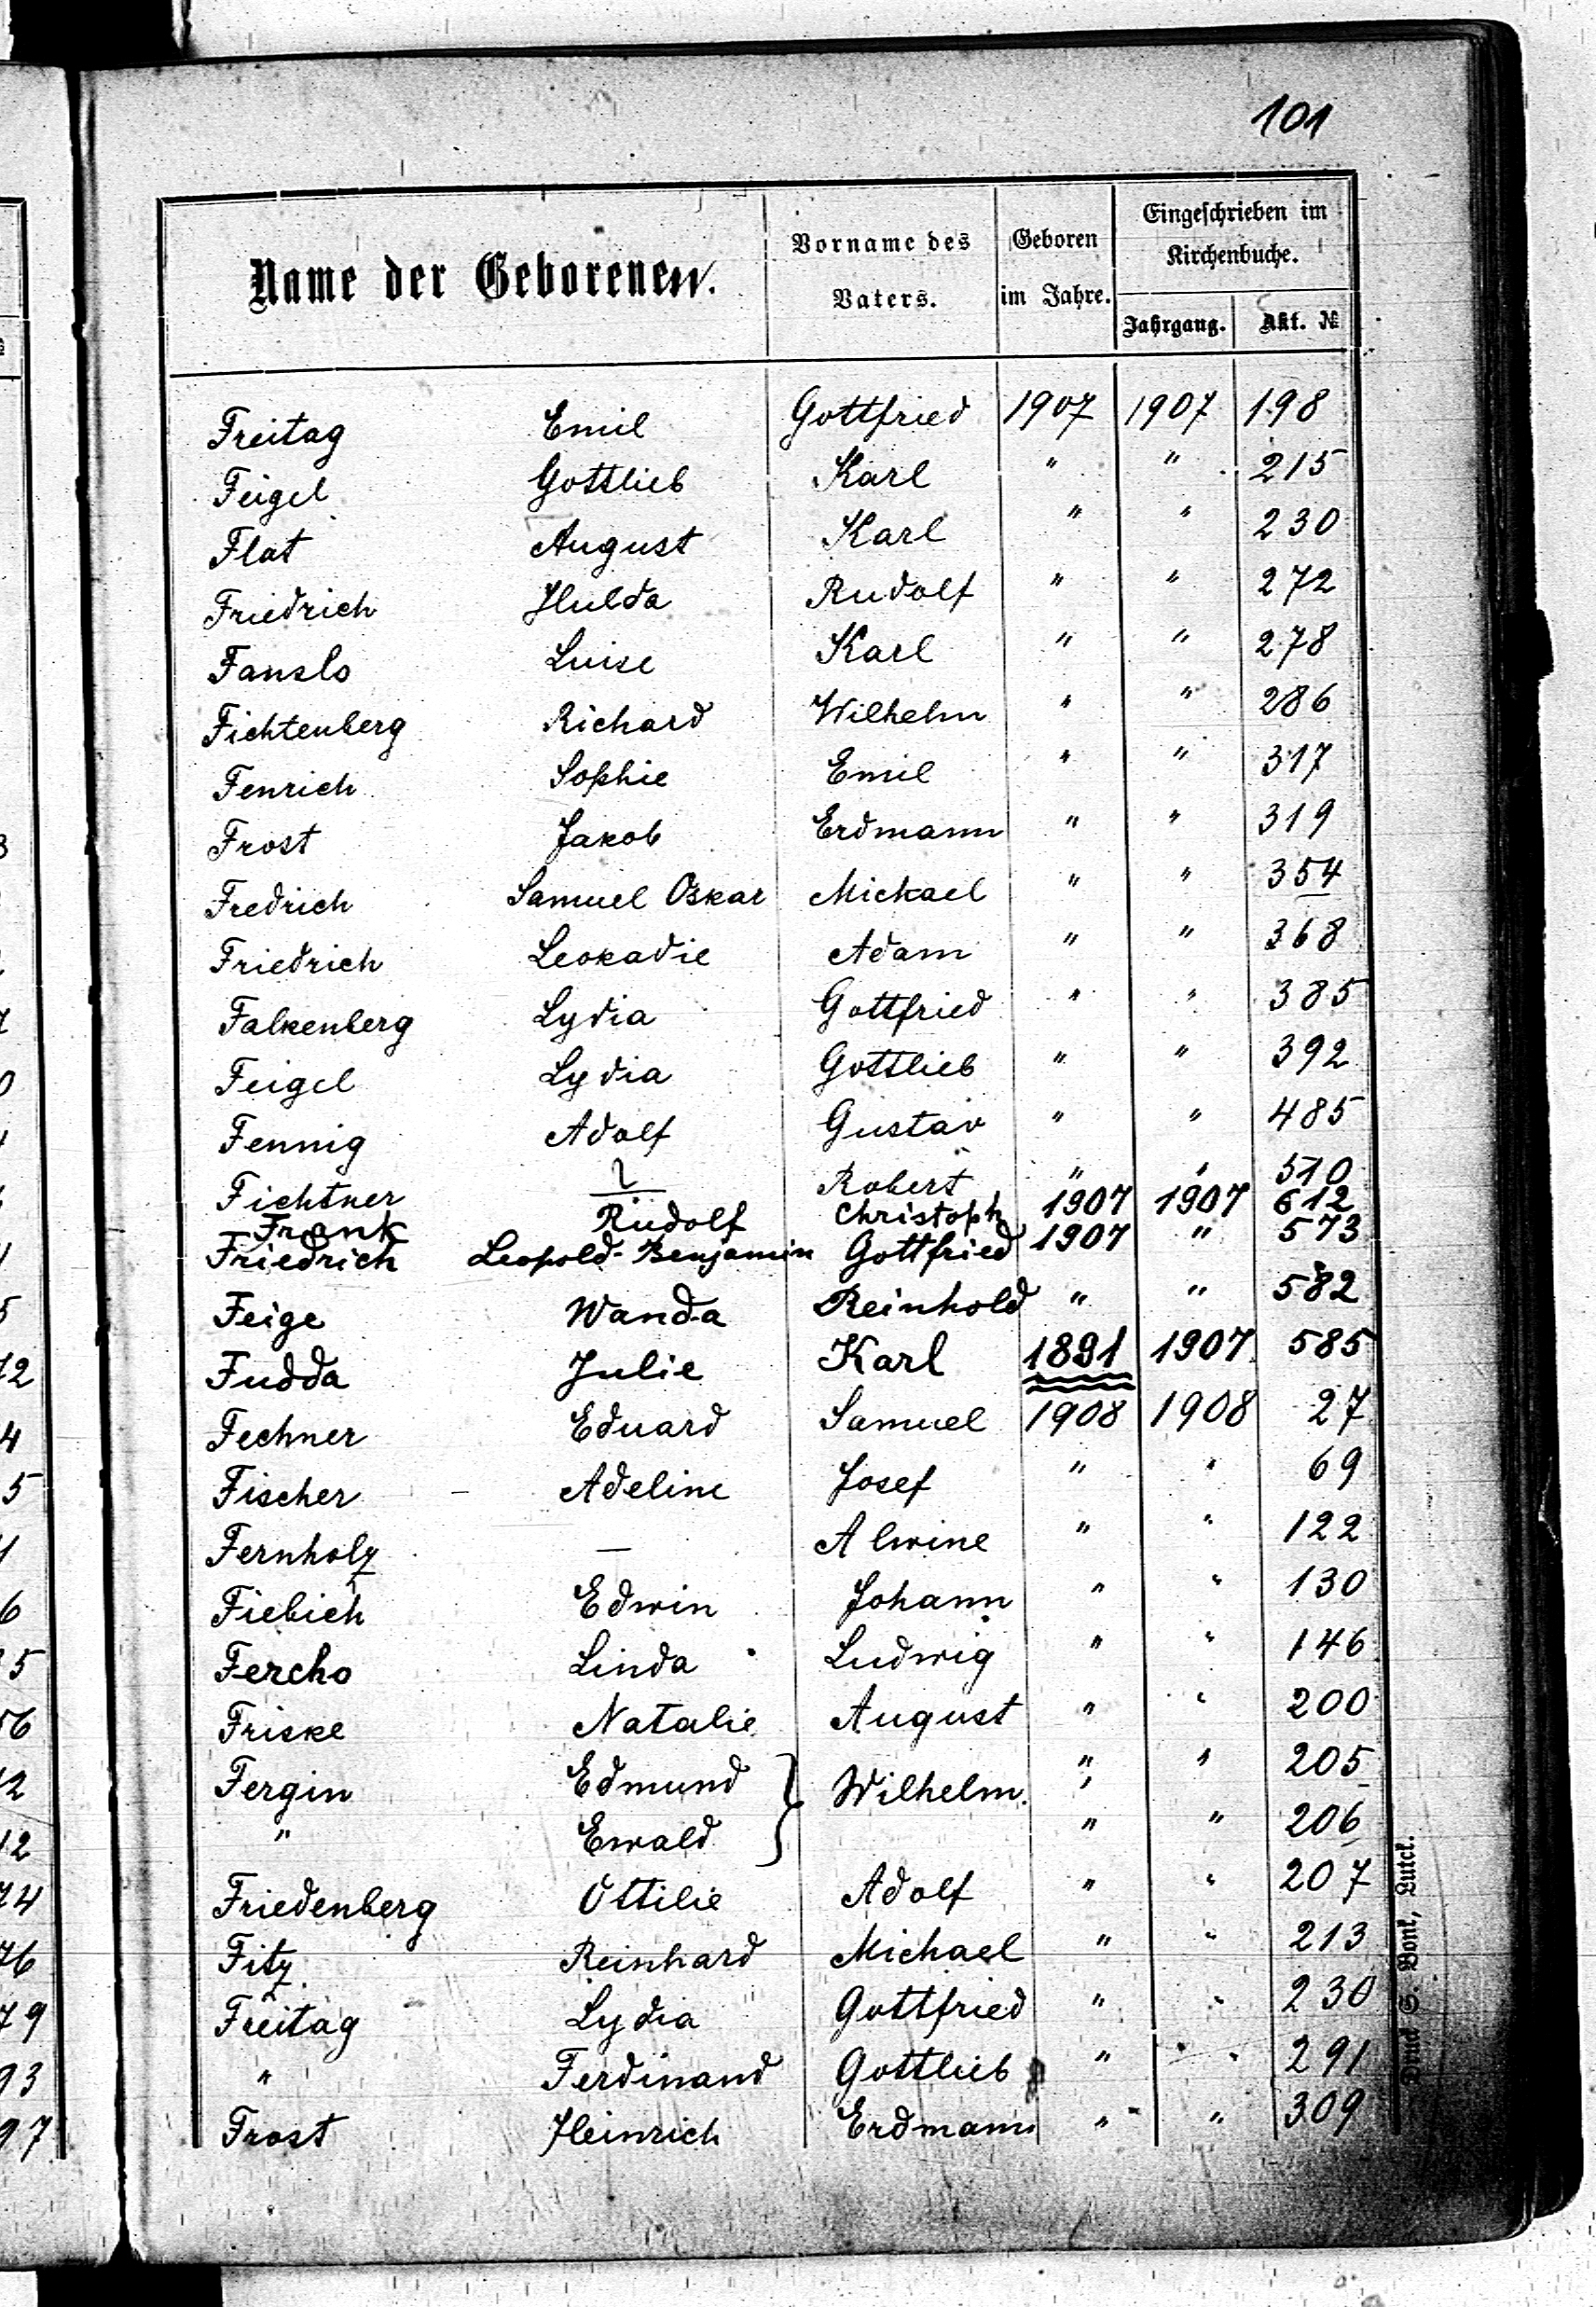 101
Name der Geborenen.
Vorname des Vaters.
Geboren im Jahre.
Eingeschrieben im Kirchenbuche.
Jahrgang. Akt. №
Freitag Emil Gottfried 1907 1907 198
Feigel Gottlieb Karl " " 215
Flat August Karl " " 230
Friedrich Hulda Rudolf " " 272
Fanslo Luise Karl " " 278
Fichtenberg Richard Wilhelm " " 286
Fenrich Sophie Emil " " 317
Frost Jakob Erdmann " " 319
Fredrich Samuel Oskar Michael " " 354
Friedrich Leokadie Adam " " 368
Falkenberg Lydia Gottfried " " 385
Feigel Lydia Gottlieb " " 392
Fennig Adolf Gustav " " 485
Fichtner Robert " " 510
Frank Rudolf Christoph 1907 1907 612
Friedrich Leopold-Benjamin Gottfried 1907 " 573
Feige Wanda Reinhold " " 582
Fudda Julie Karl 1891 1907 585
Fechner Eduard Samuel 1908 1908 27
Fischer Adeline Josef " " 69
Fernholz — Alwine " " 122
Fiebich Edwin Johann " " 130
Fercho Linda Ludwig " " 146
Friske Natalie August " " 200
Fergin Edmund } Wilhelm " " 205
" Ewald " " 206
Friedenberg Ottilie Adolf " " 207
Fitz Reinhard Michael " " 213
Freitag Lydia Gottfried " " 230
" Ferdinand Gottlieb " " 291
Frost Heinrich Erdmann " " 309
Druck S. Bonk, Lutck.